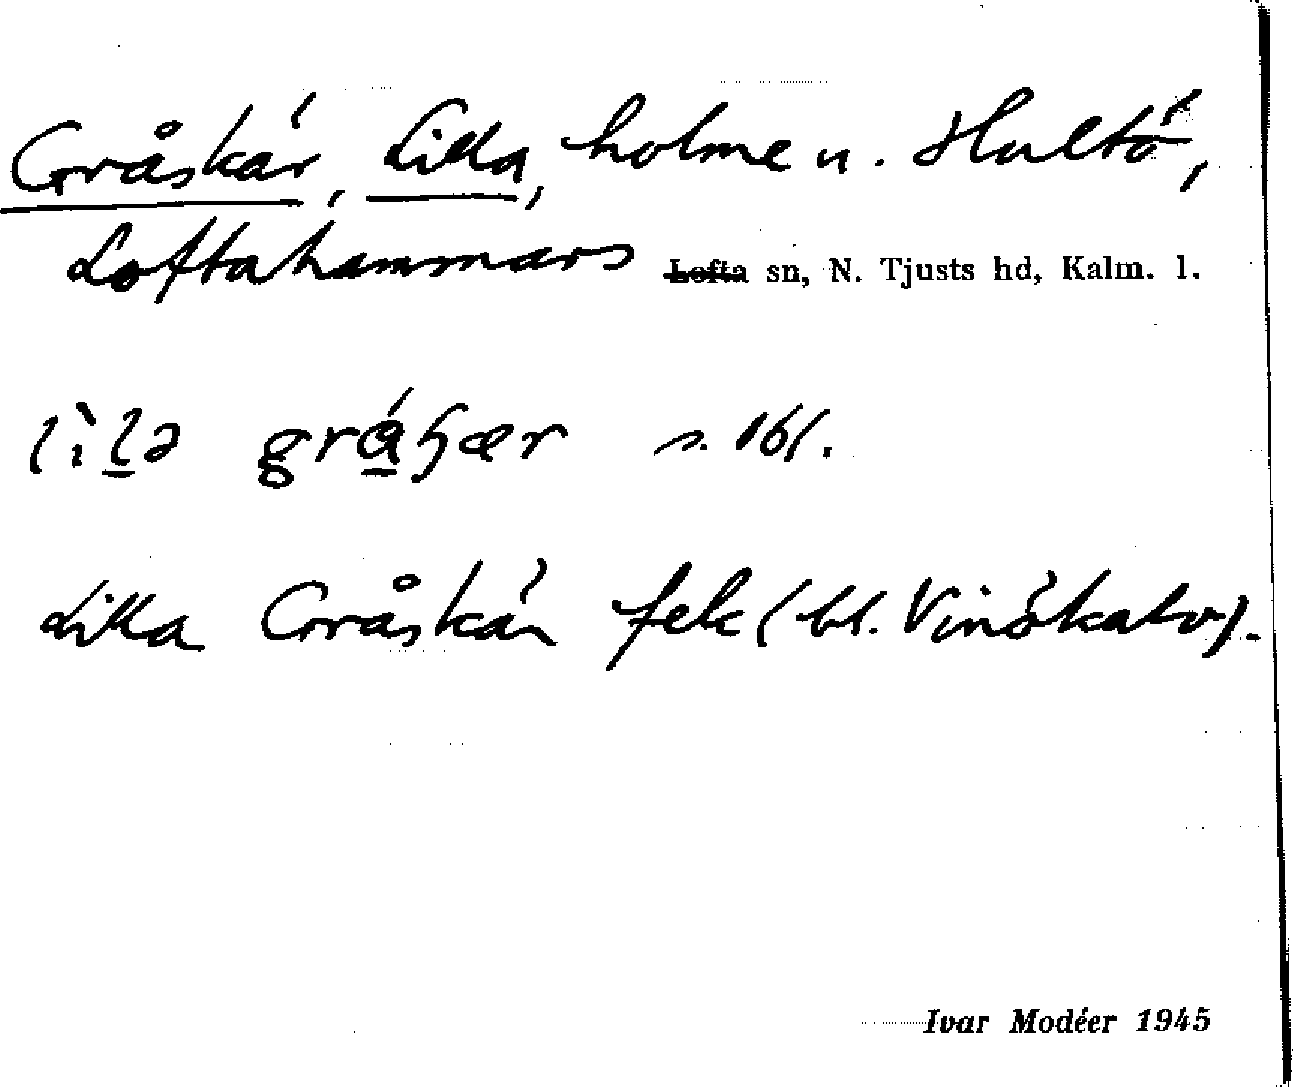 Gråskär, Lilla, holme u. Hultö,
Loftahammars Lofta sn, N. Tjusts hd, Kalm. l.
s. 161.
Lilla Gråskär fek (bl. Vinökalv).
Ivar Modéer 1945